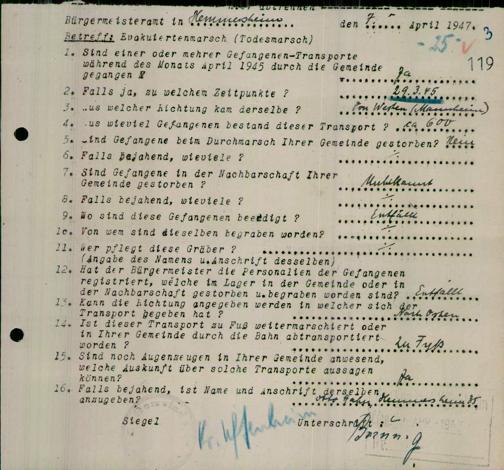 Bürgermeisteramt in Hemmersheim den 7. April 1947.
Betreff: Evakuiertenmarsch (Todesmarsch)
- 25 - v 3
119
1. Sind einer oder mehrer Gefangenen-Transporte
während des Monats April 1945 durch die Gemeinde
gegangen ? Ja
2. Falls ja, zu welchem Zeitpunkte ? 29.3.45
3. .us welcher Richtung kam derselbe ? Von Westen (Mannheim)
4. .us wieviel Gefangenen bestand dieser Transport ? ca 600
5. .ind Gefangene beim Durchmarsch Ihrer Gemeinde gestorben? Nein
6. Falls bejahend, wieviele ? ./.
7. Sind Gefangene in der Nachbarschaft Ihrer
Gemeinde gestorben ? Unbekannt
8. Falls bejahend, wieviele ? ./.
9. Wo sind diese Gefangenen beerdigt ? Entfällt
10. Von wem sind dieselben begraben worden? ./.
11. Wer pflegt diese Gräber ? ./.
(Angabe des Namens u.Anschrift desselben)
12. Hat der Bürgermeister die Personalien der Gefangenen
registriert, welche im Lager in der Gemeinde oder in
der Nachbarschaft gestorben u.begraben worden sind? Entfällt
13. Kann die Richtung angegeben werden in welcher sich der
Transport begeben hat ? Nach Osten
14. Ist dieser Transport zu Fuß weitermarschiert oder
in Ihrer Gemeinde durch die Bahn abtransportiert
worden ? Zu Fuß
15. Sind noch Augenzeugen in Ihrer Gemeinde anwesend,
welche Auskunft über solche Transporte aussagen
können? Ja
16. Falls bejahend, ist Name und Anschrift derselben
anzugeben? Hemmersheim 35
Siegel Unterschrift :
Kr. Uffenheim